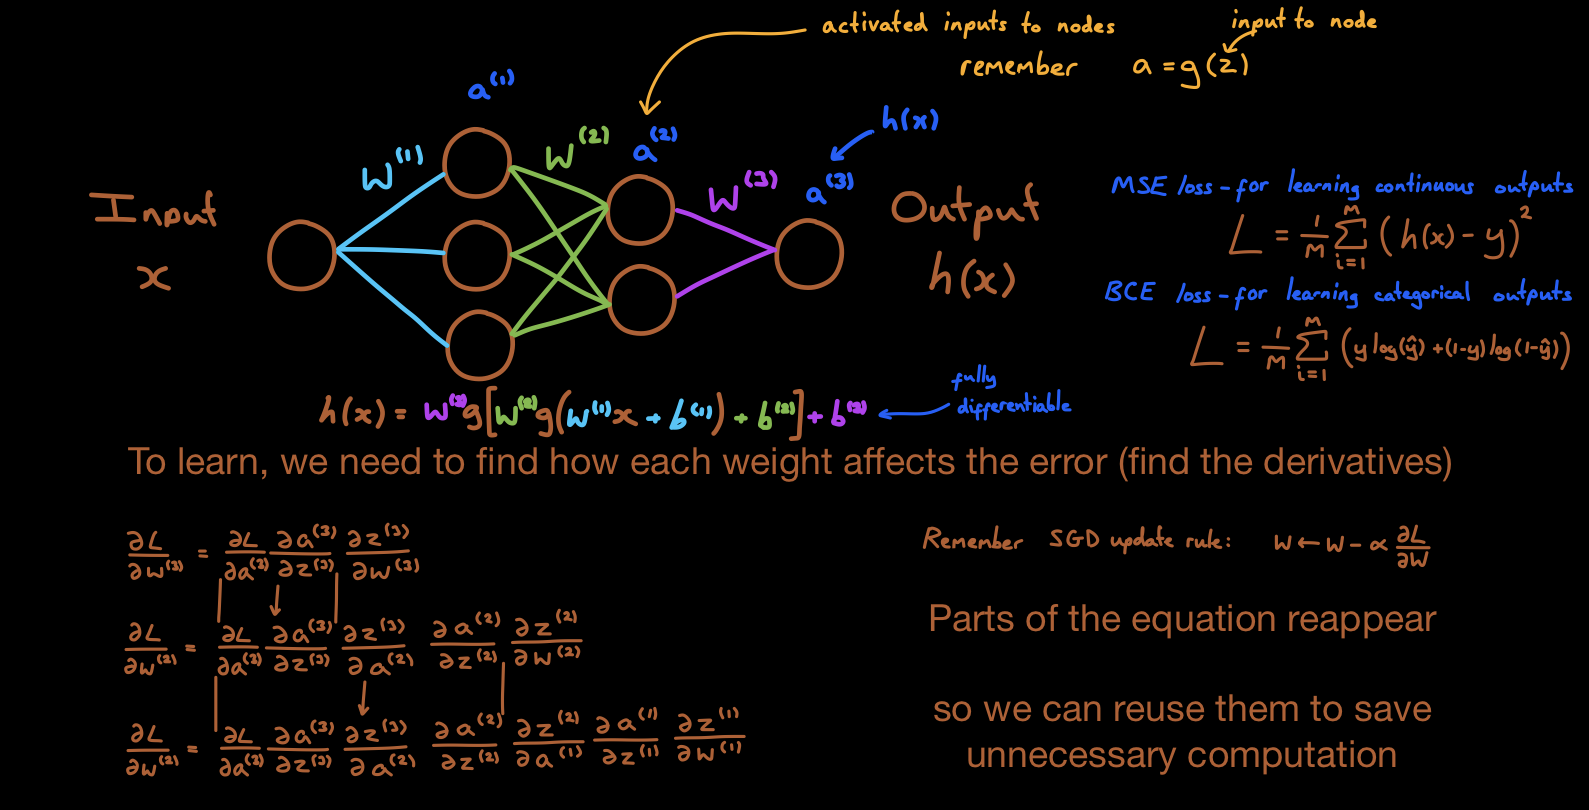 activated inputs to nodes
input to node
remember a = g(z)
a⁽¹⁾
h(x)
W⁽¹⁾
W⁽²⁾
a⁽²⁾
W⁽³⁾
a⁽³⁾
Input
x
Output
h(x)
MSE loss - for learning continuous outputs
L = 1/M Σ_{i=1}^{M} (h(x) - y)²
BCE loss - for learning categorical outputs
L = 1/M Σ_{i=1}^{M} (y log(ŷ) + (1-y) log(1-ŷ))
fully
differentiable
h(x) = w⁽³⁾g[w⁽²⁾g(w⁽¹⁾x + b⁽¹⁾) + b⁽²⁾] + b⁽³⁾
To learn, we need to find how each weight affects the error (find the derivatives)
∂L/∂w⁽³⁾ = ∂L/∂a⁽³⁾ ∂a⁽³⁾/∂z⁽³⁾ ∂z⁽³⁾/∂w⁽³⁾
∂L/∂w⁽²⁾ = ∂L/∂a⁽³⁾ ∂a⁽³⁾/∂z⁽³⁾ ∂z⁽³⁾/∂a⁽²⁾ ∂a⁽²⁾/∂z⁽²⁾ ∂z⁽²⁾/∂w⁽²⁾
∂L/∂w⁽²⁾ = ∂L/∂a⁽³⁾ ∂a⁽³⁾/∂z⁽³⁾ ∂z⁽³⁾/∂a⁽²⁾ ∂a⁽²⁾/∂z⁽²⁾ ∂z⁽²⁾/∂a⁽¹⁾ ∂a⁽¹⁾/∂z⁽¹⁾ ∂z⁽¹⁾/∂w⁽¹⁾
Remember SGD update rule: w ← w - α ∂L/∂w
Parts of the equation reappear
so we can reuse them to save
unnecessary computation